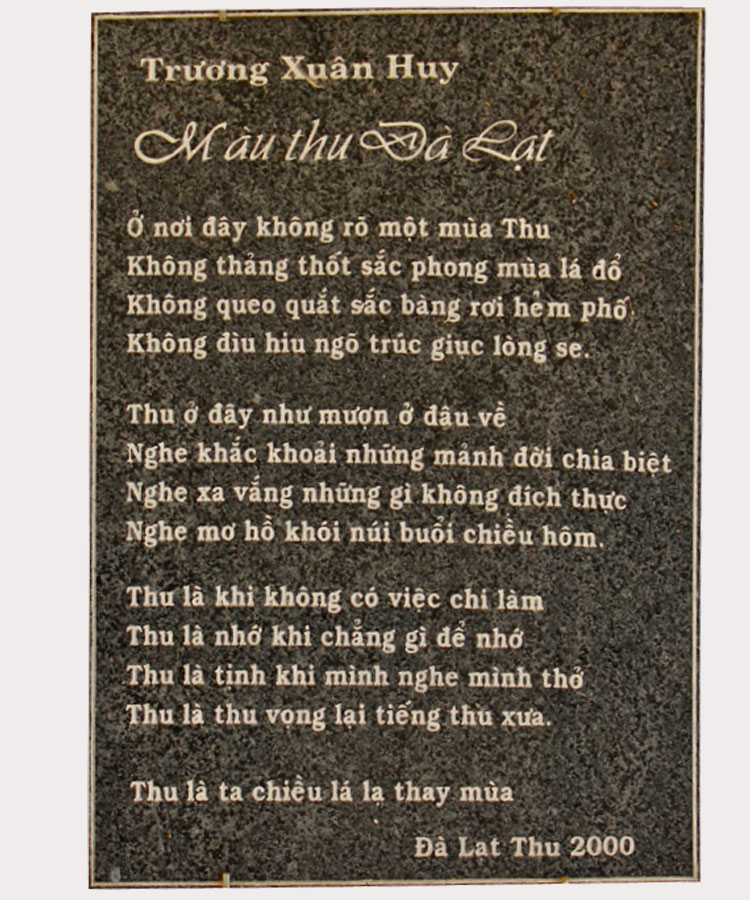 Trương Xuân Huy
Màu thu Đà Lạt
Ở nơi đây không rõ một mùa Thu
Không thảng thốt sắc phong mùa lá đổ
Không queo quắt sắc bàng rơi hẻm phố
Không đìu hiu ngõ trúc giục lòng se.
Thu ở đây như mượn ở đâu về
Nghe khắc khoải những mảnh đời chia biệt
Nghe xa vắng những gì không đích thực
Nghe mơ hồ khói núi buổi chiều hôm.
Thu là khi không có việc chi làm
Thu là nhớ khi chẳng gì để nhớ
Thu là tịnh khi mình nghe mình thở
Thu là thu vọng lại tiếng thu xưa.
Thu là ta chiều lá lạ thay mùa
Đà Lạt Thu 2000